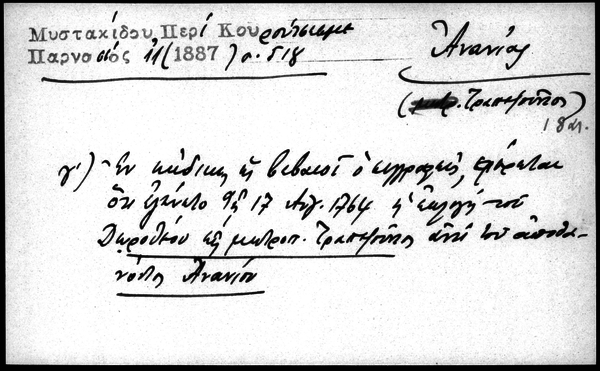 Μυστακίδου, Περί Κουρούτσεσμε
Παρνασσός 11 (1887) σ. 518
Ἀνανίας
(μητρ. Τραπεζοῦντος)
18 αι.
γ') Ἐν κώδικι ὡς βεβαιοῖ ὁ συγγραφεύς, φέρεται
ὅτι ἐγένετο τῇ 17 Αὐγ. 1764 ἡ ἐκλογή τοῦ
Δωροθέου εἰς μητροπ. Τραπεζοῦντος ἀντί τοῦ ἀποθα-
νόντος Ἀνανίου